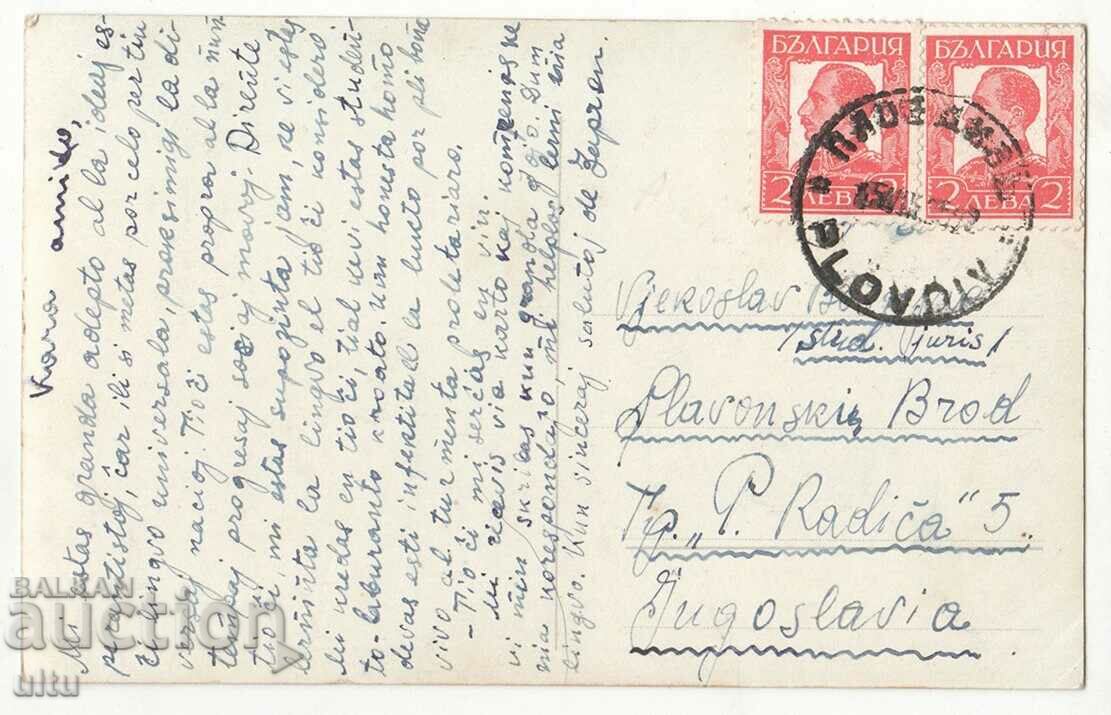 Kara amiko,
Mi estas granda adepto al la ideaj es-
perantistoj, ĉar ili si metas por celo per tiu
ĉi lingvo universala, proksimigi la di
versaj nacioj. Tio ĉi estas propra al la nun
tempaj progresaj socaj movoj. Dirante
tio ĉi, mi estas supozinta jam, ke vi estas
lerninta la lingvo el tio ĉi konsidero
Mi kredas en tio ĉi, tial ke vi estas studen
to-laboranto kroato. Unu honesta homo
devas esti infektita de la lukto por pli bone
vivo al turmenta proletariaro.
– Tio ĉi mi serĉas en vin.
Mi ricevis via karto kaj komprenis ke
vi min skribas kun granda ĝojo. Dum
nia korespondado, mi helpos lerni via
lingvo. Kun sinceraj
salutoj de Zapran.
БЪЛГАРИЯ
2 ЛЕВА
БЪЛГАРИЯ
2 ЛЕВА 2
ПЛОВДИВ
PLOVDIV
Vjekoslav
/stud. juris/
Slavonski Brod
"P. Radića" 5
Jugoslavia
BALKAN
auction
ultu